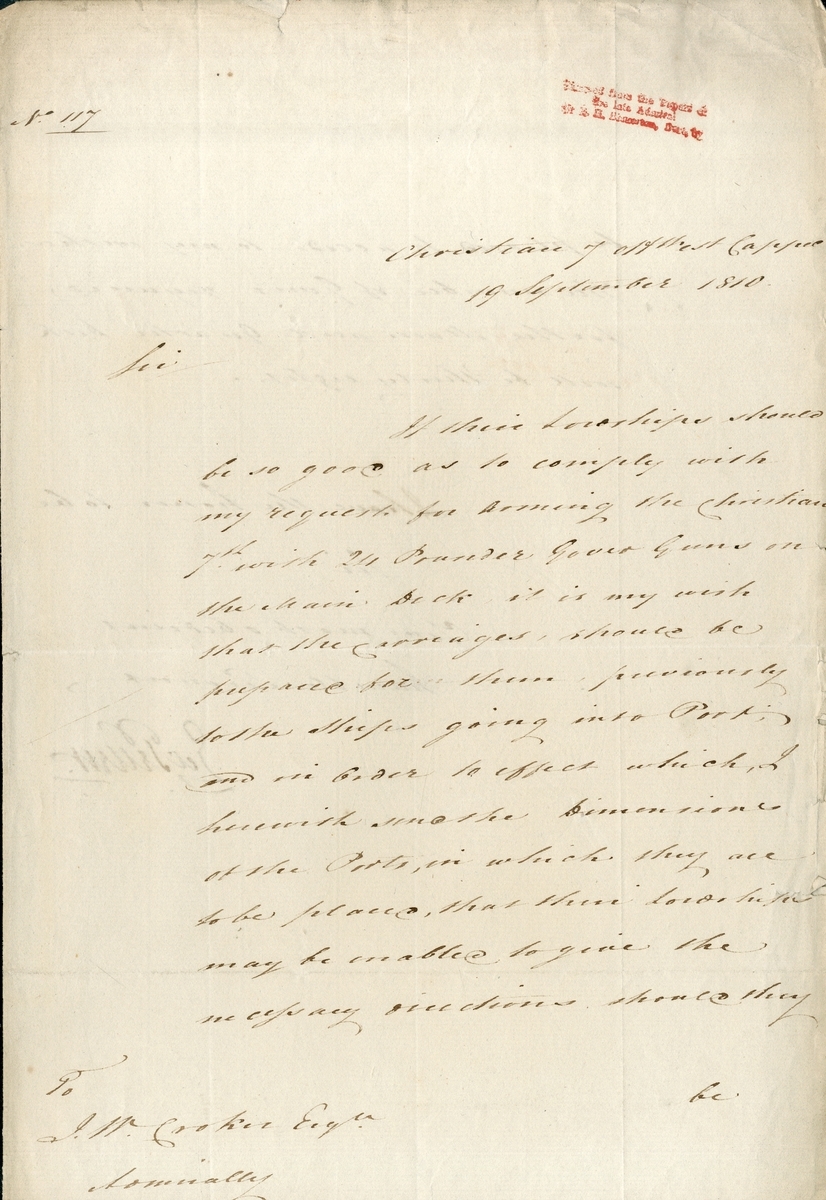 No 117
from the Papers of
the late Admiral
Christian 7 off West Cappel
19 September 1810.
Sir
If their Lordships should
be so good as to comply with
my request for arming the Christian
7th with 24 Pounder Gover Guns on
the Main Deck, it is my wish
that the carriages, should be
prepared for them, previously
to the Ships going into Port;
and in order to effect which, I
herewith send the Dimensions
of the Ports, in which they are
to be placed, that their Lordships
may be enabled to give the
necessary directions should they
be
To
J. W. Croker Esqre
Admiralty